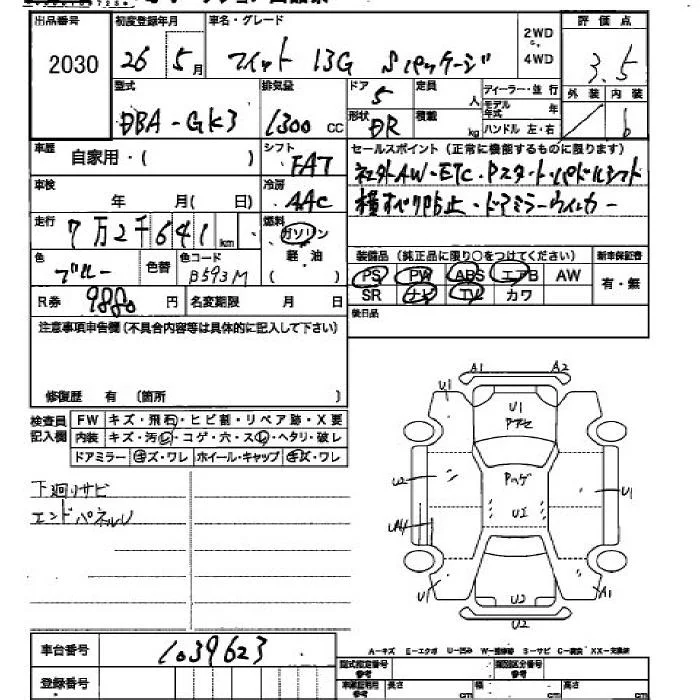 出品番号 初度登録年月 車名・グレード 2WD 評価点
2030 26 5月 フィット 13G Sパッケージ 4WD 3.5
型式 排気量 ドア 定員 ディーラー・並行 外装 内装
DBA-GK3 1300CC 5 人 モデル年式 年 b
形状 DR 積載 kg ハンドル 左・右
車歴 自家用・( ) シフト FAT セールスポイント(正常に機能するものに限ります)
車検 年 月( 日) 冷房 AAC 社外AW・ETC・Pスタート・パドルシフト
走行 7万2千641km 燃料 ガソリン 横すべり防止・ドアミラーウィンカー
軽油
( )
色 ブルー 色替 色コード B593M
装備品(純正品に限り○をつけてください) 新車保証書
PS PW ABS エアB AW 有・無
SR ナビ TV カワ
R券 9880円 名変期限 月 日
後日品
注意事項申告欄(不具合内容等は具体的に記入して下さい)
修復歴 有 (箇所 )
検査員記入欄
FW キズ・飛石・ヒビ割・リペア跡・X要
内装 キズ・汚レ・コゲ・穴・スレ・ヘタリ・破レ
ドアミラー キズ・ワレ ホイール・キャップ キズ・ワレ
下廻リサビ
エンドパネルU
A1 A2
U1 U1
Pハゲ
U2 U2 U1
U U2 A1
U2
A-キズ E-エクボ U-凹み W-補修跡 S-サビ C-腐蝕 XX-交換済
車台番号 1039623
登録番号
型式指定番号 類別区分番号
参考
車庫証明用 参考 長さ cm 幅 cm 高さ cm